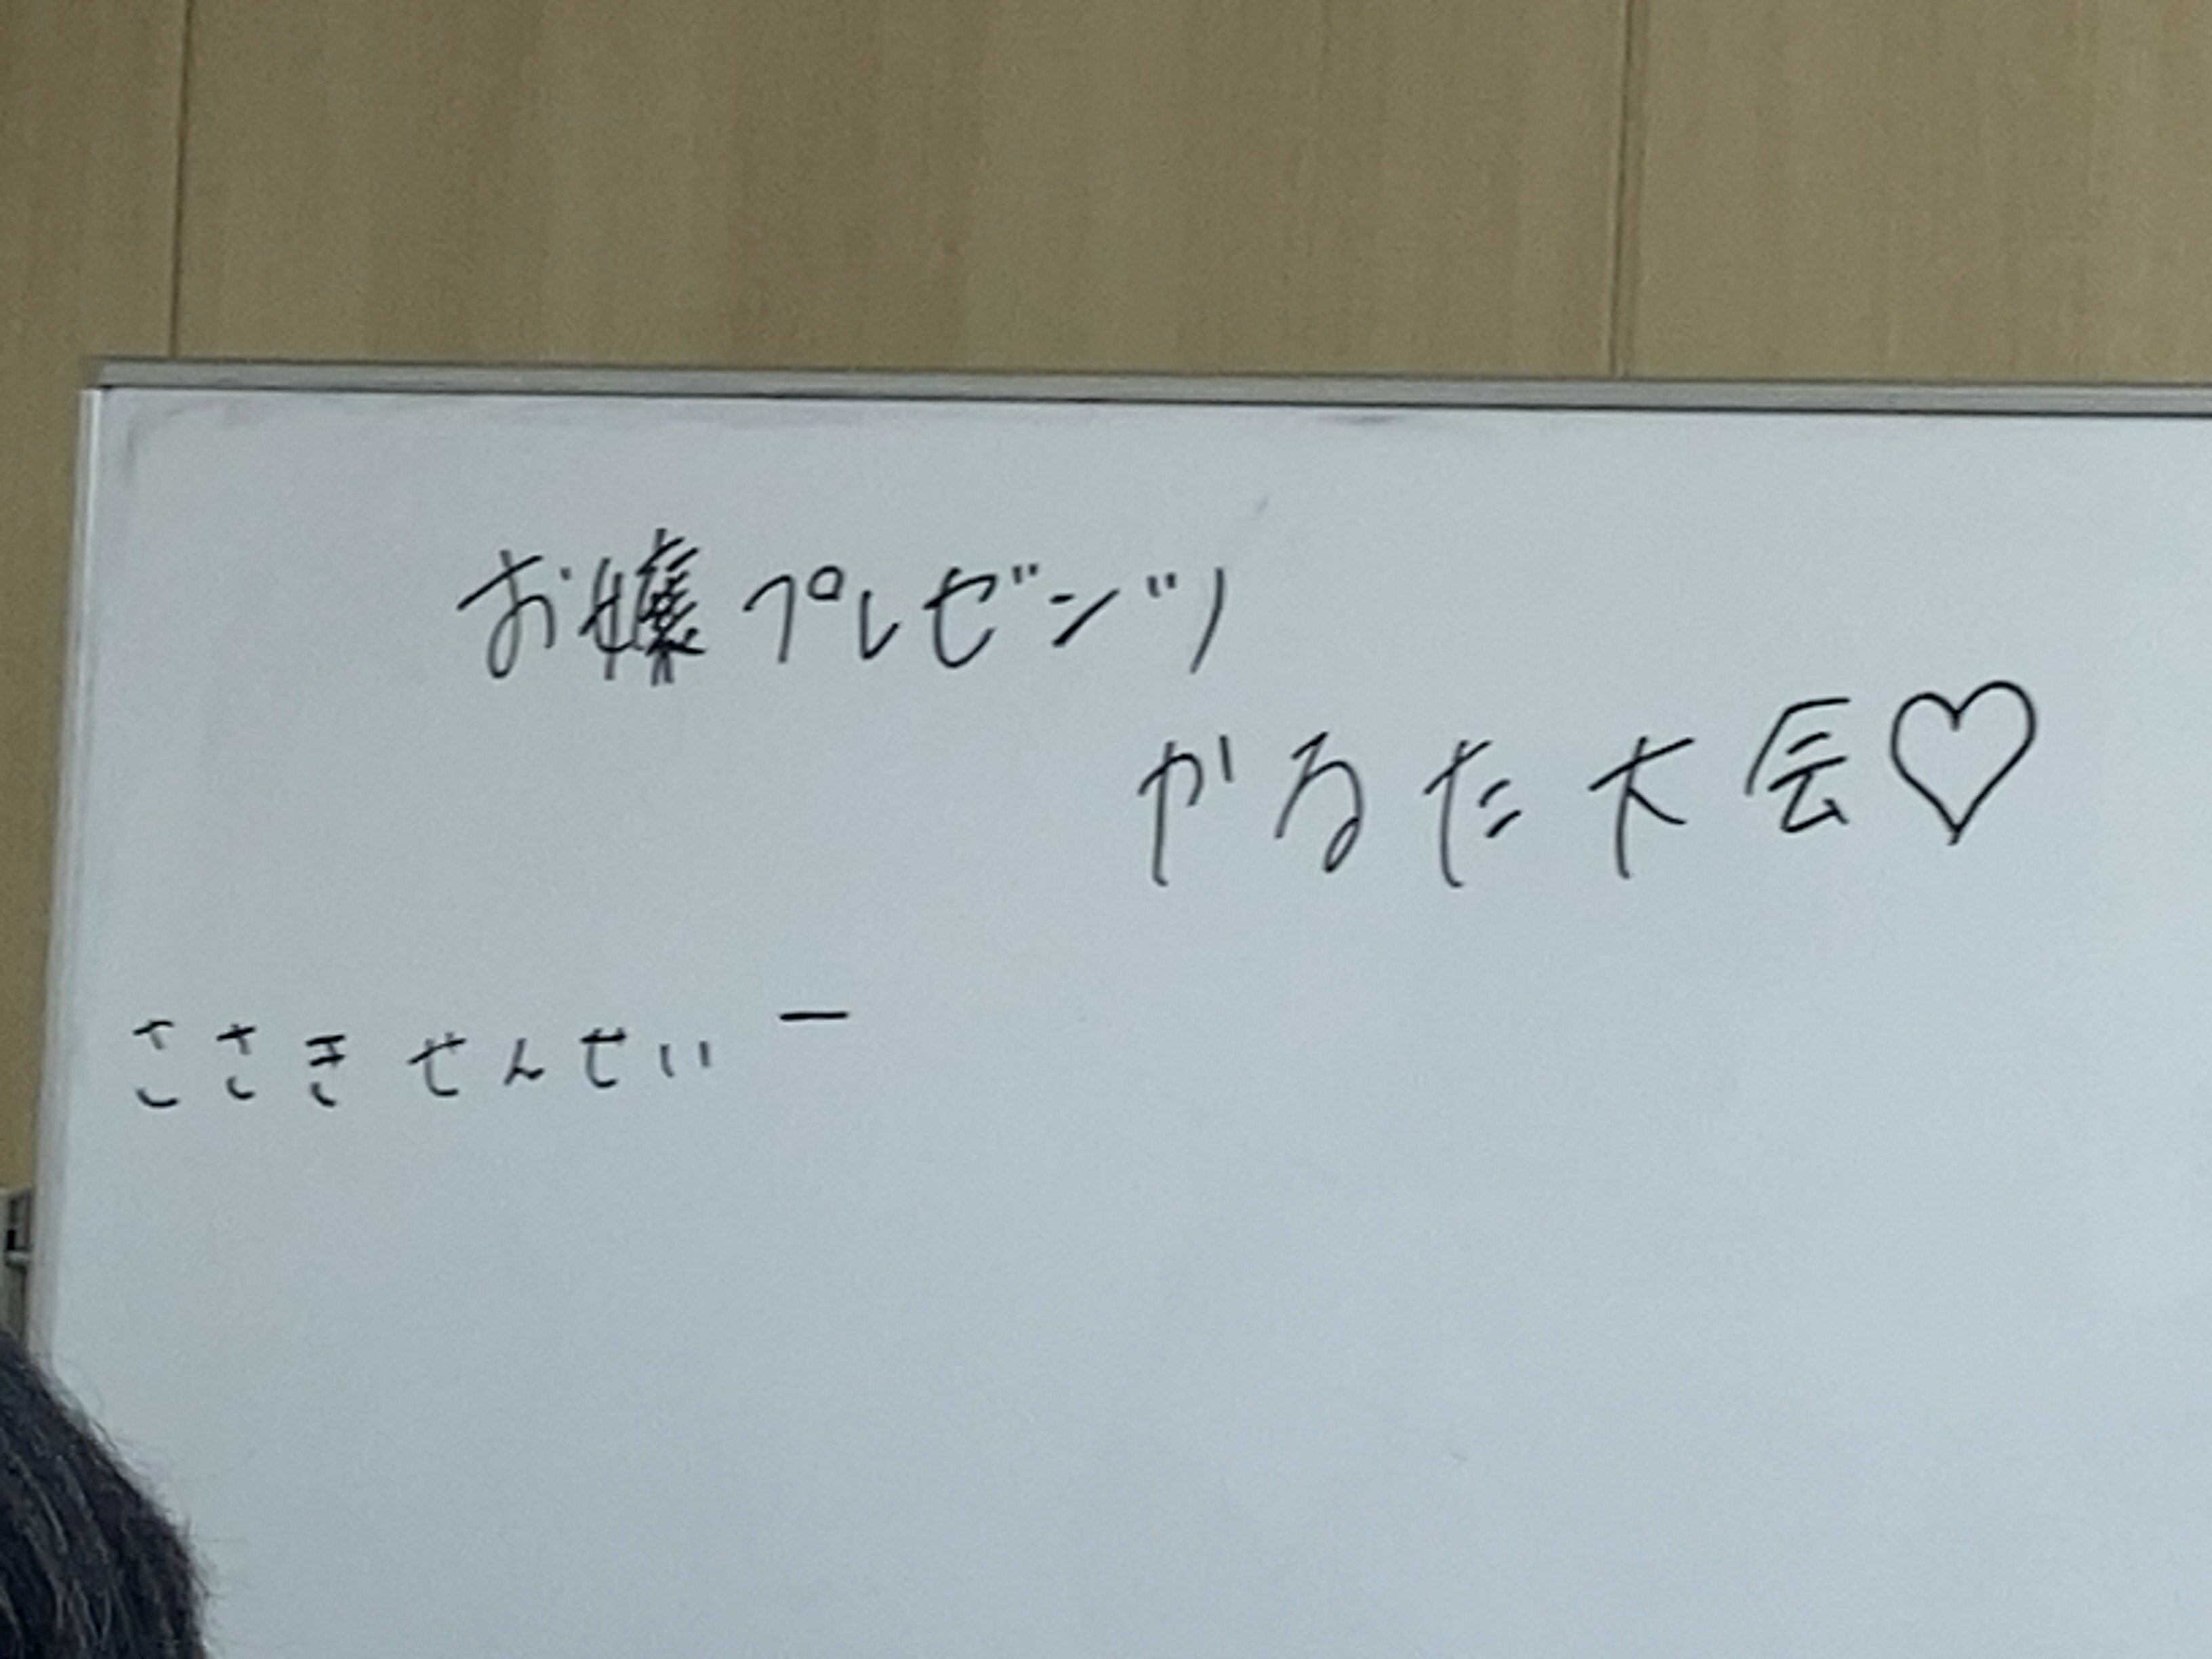 お嬢プレゼンツ
かるた大会♡
ささきせんせいー